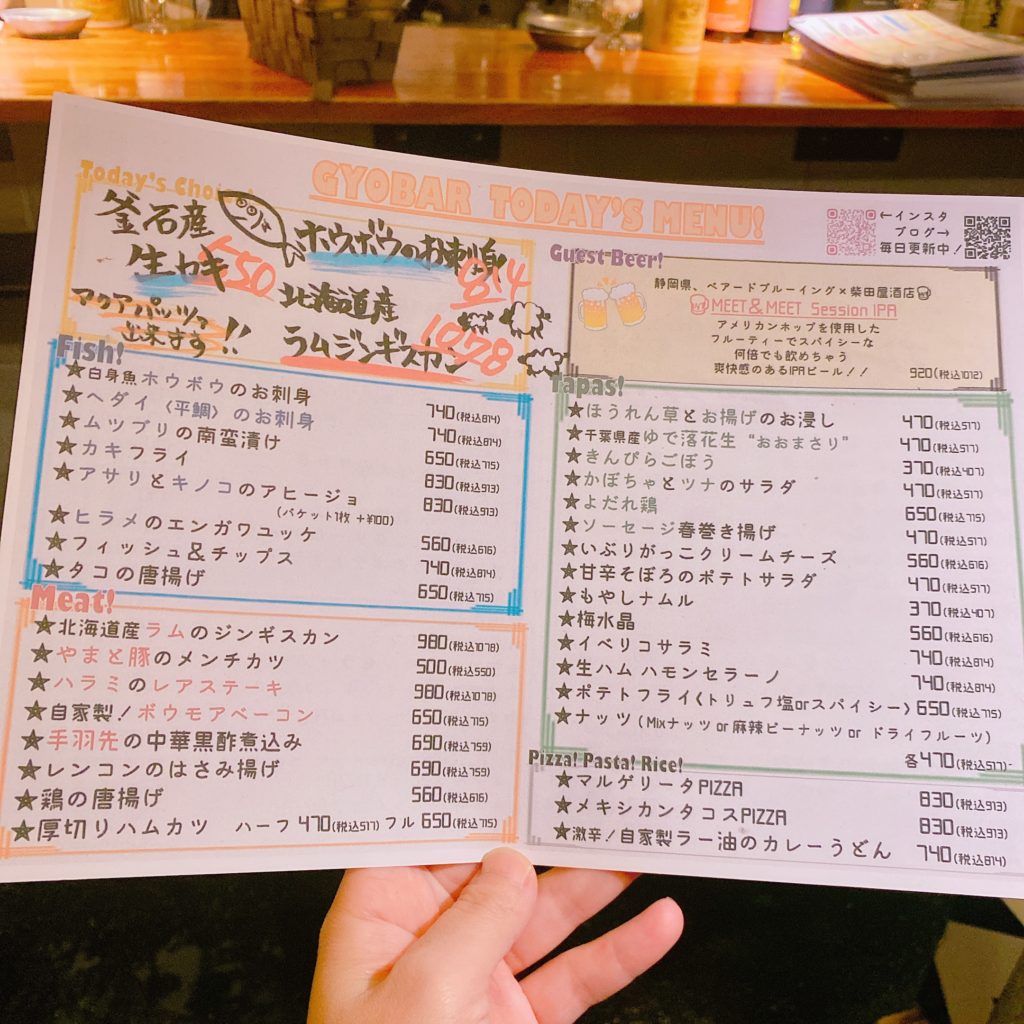 GYOBAR TODAY'S MENU!
Today's Choice!
釜石産
生カキ
550
ホウボウのお刺身
814
アクアパッツァ
出来ます!!
北海道産
ラムジンギスカン
1078
←インスタ
ブログ→
毎日更新中!
Fish!
★白身魚ホウボウのお刺身 740(税込814)
★ヘダイ〈平鯛〉のお刺身 740(税込814)
★ムツブリの南蛮漬け 650(税込715)
★カキフライ 830(税込913)
★アサリとキノコのアヒージョ 830(税込913)
(バケット1枚 +¥100)
★ヒラメのエンガワユッケ 560(税込616)
★フィッシュ&チップス 740(税込814)
★タコの唐揚げ 650(税込715)
Meat!
★北海道産ラムのジンギスカン 980(税込1078)
★やまと豚のメンチカツ 500(税込550)
★ハラミのレアステーキ 980(税込1078)
★自家製!ボウモアベーコン 650(税込715)
★手羽先の中華黒酢煮込み 690(税込759)
★レンコンのはさみ揚げ 690(税込759)
★鶏の唐揚げ 560(税込616)
★厚切りハムカツ ハーフ 470(税込517) フル 650(税込715)
Guest Beer!
静岡県、ベアードブルーイング×柴田屋酒店
MEET&MEET Session IPA
アメリカンホップを使用した
フルーティーでスパイシーな
何倍でも飲めちゃう
爽快感のあるIPAビール!! 920(税込1012)
Tapas!
★ほうれん草とお揚げのお浸し 470(税込517)
★千葉県産ゆで落花生 “おおまさり” 470(税込517)
★きんぴらごぼう 370(税込407)
★かぼちゃとツナのサラダ 470(税込517)
★よだれ鶏 650(税込715)
★ソーセージ春巻き揚げ 470(税込517)
★いぶりがっこクリームチーズ 560(税込616)
★甘辛そぼろのポテトサラダ 470(税込517)
★もやしナムル 370(税込407)
★梅水晶 560(税込616)
★イベリコサラミ 740(税込814)
★生ハム ハモンセラーノ 740(税込814)
★ポテトフライ〈トリュフ塩orスパイシー〉650(税込715)
★ナッツ(Mixナッツ or 麻辣ピーナッツ or ドライフルーツ)
各470(税込517)-
Pizza! Pasta! Rice!
★マルゲリータPIZZA 830(税込913)
★メキシカンタコスPIZZA 830(税込913)
★激辛!自家製ラー油のカレーうどん 740(税込814)